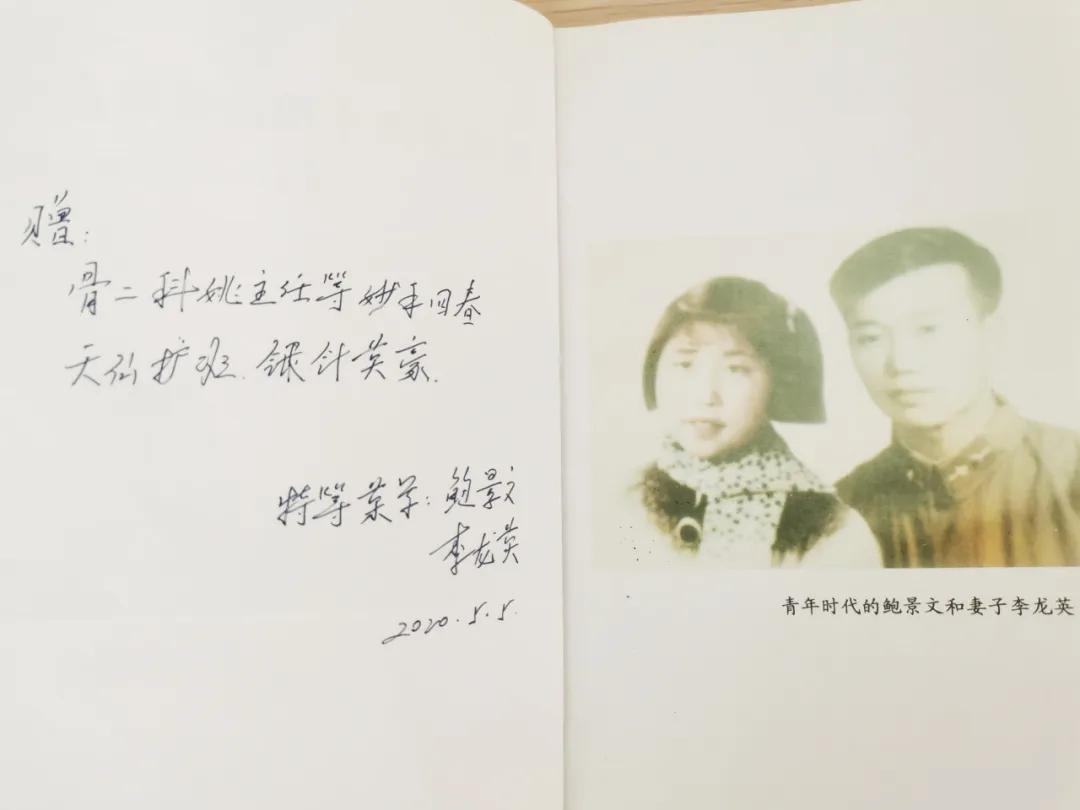 赠:
骨二科姚主任等妙手回春
天仙护班.银针英豪.
特等荣军:鲍景文
李龙英
2020.5.5.
青年时代的鲍景文和妻子李龙英